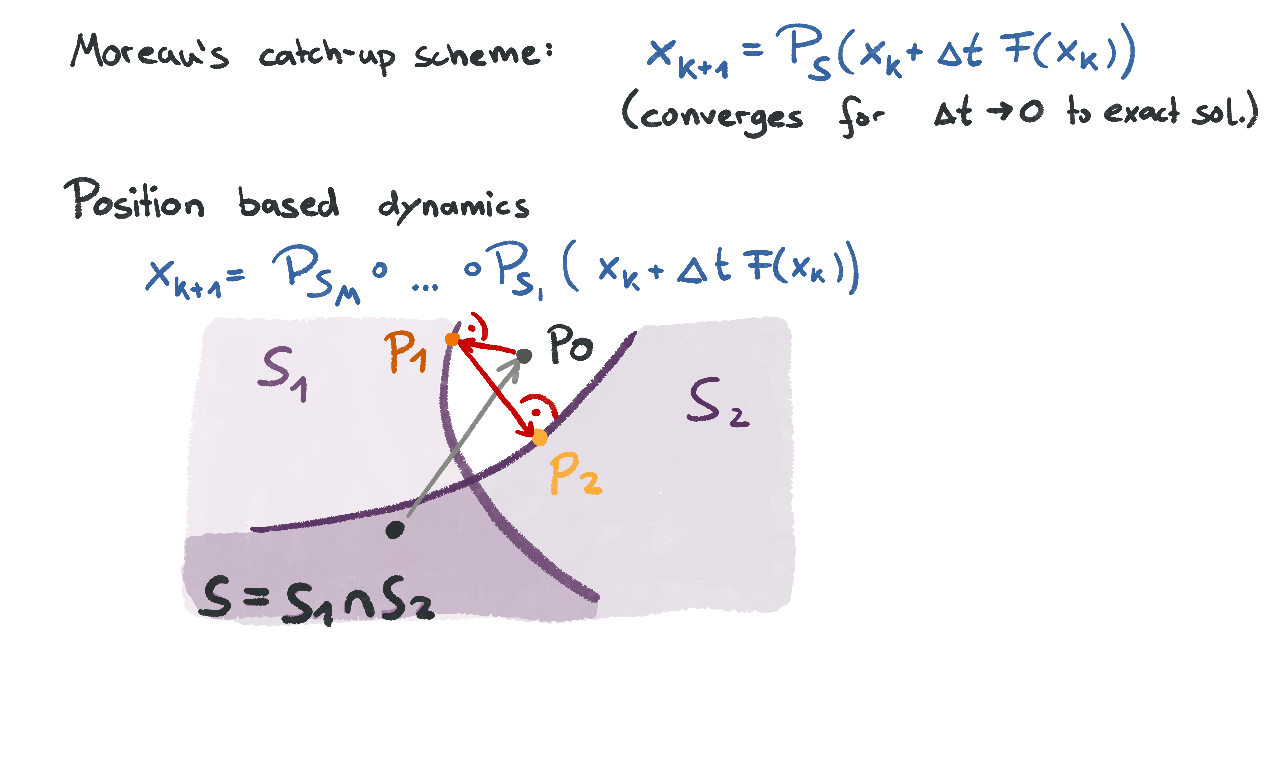 Moreau's catch-up scheme: x_{k+1} = P_S(x_k + Δt F(x_k))
(converges for Δt → 0 to exact sol.)
Position based dynamics
x_{k+1} = P_{S_M} ∘ ... ∘ P_{S_1} (x_k + Δt F(x_k))
P1
P0
S_1
S_2
P2
S = S_1 ∩ S_2